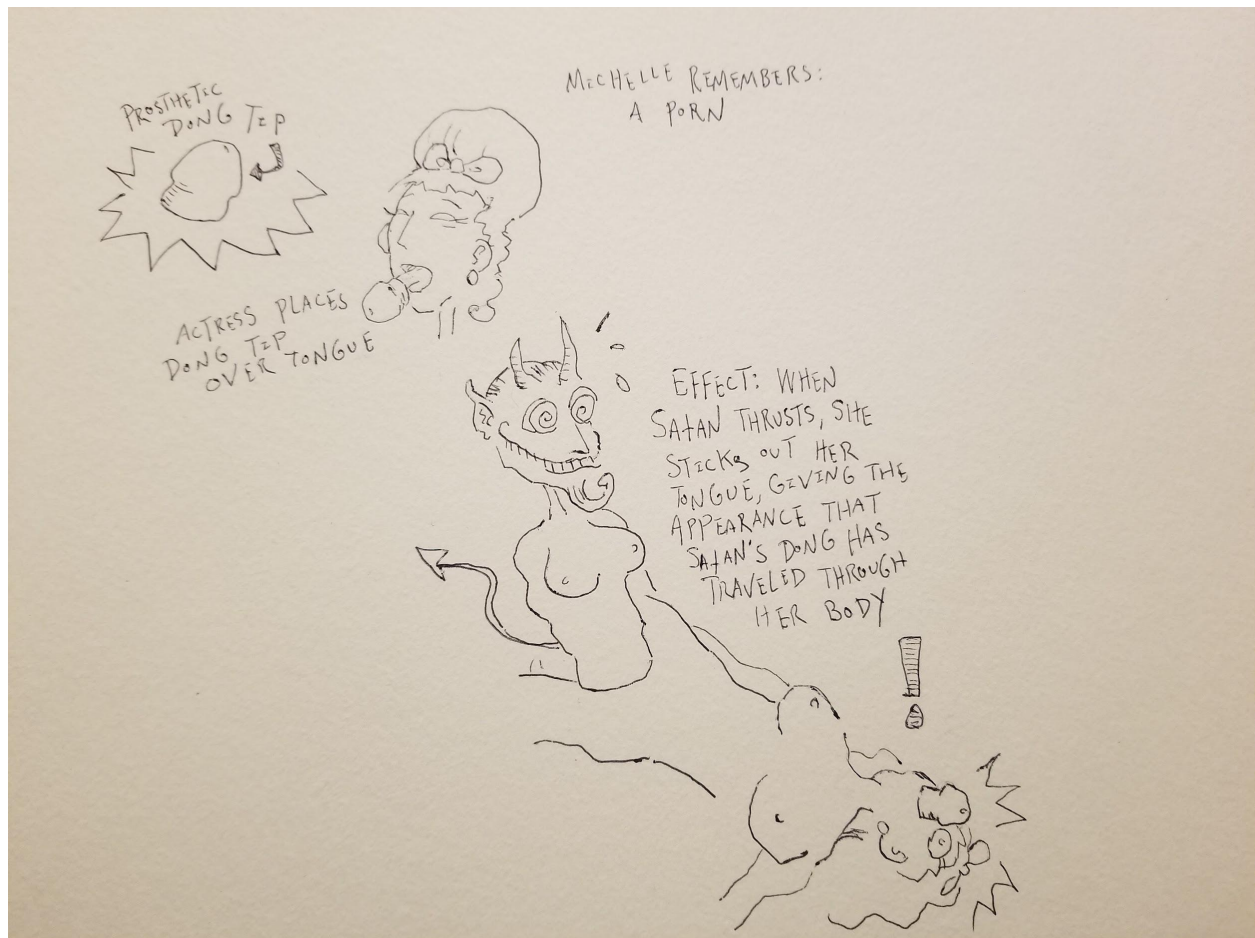 MICHELLE REMEMBERS:
A PORN
PROSTHETIC
DONG TIP
ACTRESS PLACES
DONG TIP
OVER TONGUE
EFFECT: WHEN
SATAN THRUSTS, SHE
STICKS OUT HER
TONGUE, GIVING THE
APPEARANCE THAT
SATAN'S DONG HAS
TRAVELED THROUGH
HER BODY